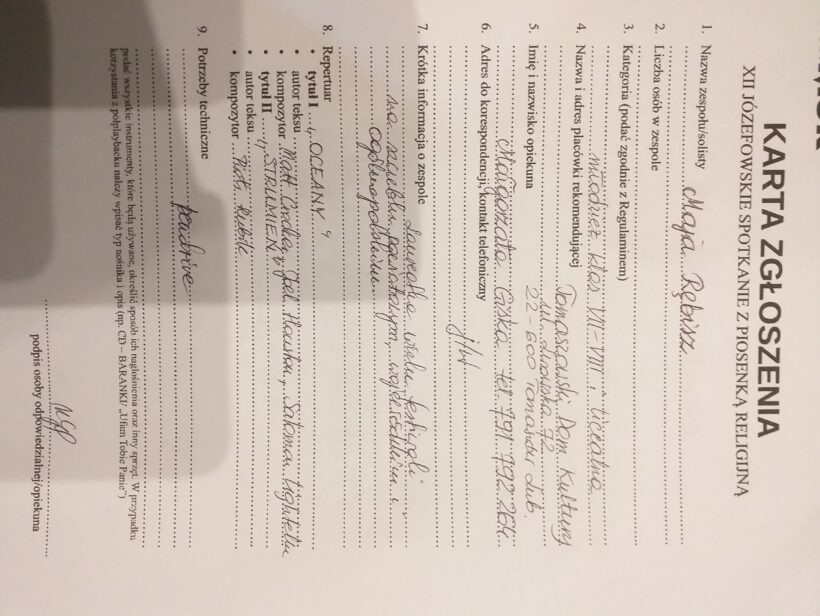 KARTA ZGŁOSZENIA
XII JÓZEFOWSKIE SPOTKANIE Z PIOSENKĄ RELIGIJNĄ
1. Nazwa zespołu/solisty
Maja Rębisz
2. Liczba osób w zespole
3. Kategoria (podać zgodnie z Regulaminem)
młodzież klas VII-VIII i licealna
4. Nazwa i adres placówki rekomendującej
Tomaszowski Dom Kultury
ul. Lwowska 72
22-600 Tomaszów Lub.
5. Imię i nazwisko opiekuna
Małgorzata tel. 791 792 264
6. Adres do korespondencji, kontakt telefoniczny
7. Krótka informacja o zespole
Laureatka wielu festiwali
na szczeblu powiatowym, wojewódzkim i
ogólnopolskim
8. Repertuar
• tytuł I „OCEANY"
• autor teksu
• kompozytor Matt Crocker, Joel Houston, Salomon Lighthelm
• tytuł II „STRUMIEŃ"
• autor teksu
• kompozytor Piotr Rubik
9. Potrzeby techniczne
pendrive
podać wszystkie instrumenty, które będą używane, określić sposób ich nagłośnienia oraz inny sprzęt. W przypadku
korzystania z półplaybacku należy wpisać typ nośnika i opis (np. CD – BARANKI/ „Ufam Tobie Panie")
podpis osoby odpowiedzialnej/opiekuna